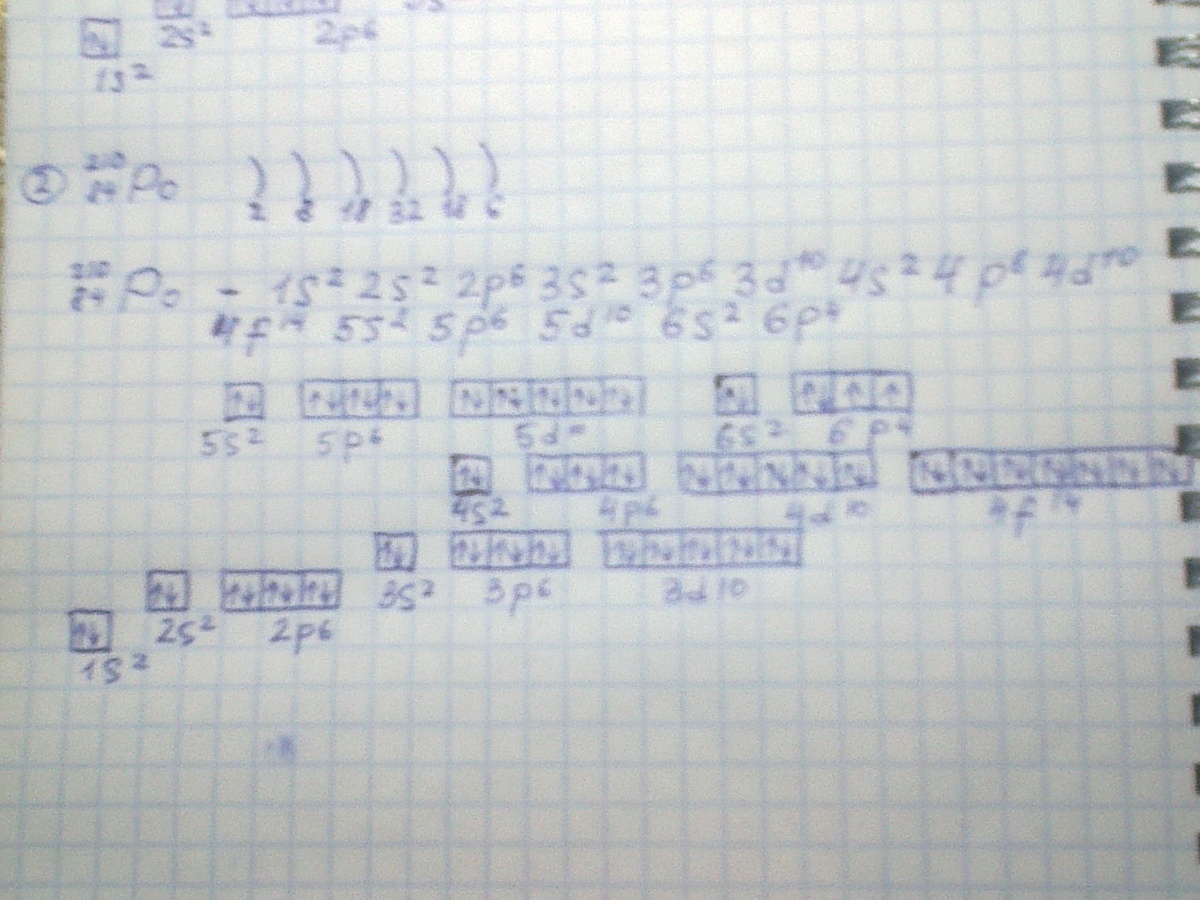 2s² 2p⁶
1s²
② ²¹⁰₈₄Po ) ) ) ) ) )
2 8 18 32 18 6
²¹⁰₈₄Po - 1s² 2s² 2p⁶ 3s² 3p⁶ 3d¹⁰ 4s² 4p⁶ 4d¹⁰
4f¹⁴ 5s² 5p⁶ 5d¹⁰ 6s² 6p⁴
↑↓ ↑↓ ↑↓ ↑↓ ↑↓ ↑↓ ↑↓ ↑↓ ↑↓ ↑↓ ↑↓ ↑ ↑
5s² 5p⁶ 5d¹⁰ 6s² 6p⁴
↑↓ ↑↓ ↑↓ ↑↓ ↑↓ ↑↓ ↑↓ ↑↓ ↑↓ ↑↓ ↑↓ ↑↓ ↑↓ ↑↓ ↑↓ ↑↓
4s² 4p⁶ 4d¹⁰ 4f¹⁴
↑↓ ↑↓ ↑↓ ↑↓ ↑↓ ↑↓ ↑↓ ↑↓ ↑↓
3s² 3p⁶ 3d10
↑↓ ↑↓ ↑↓ ↑↓
2s² 2p⁶
↑↓
1s²